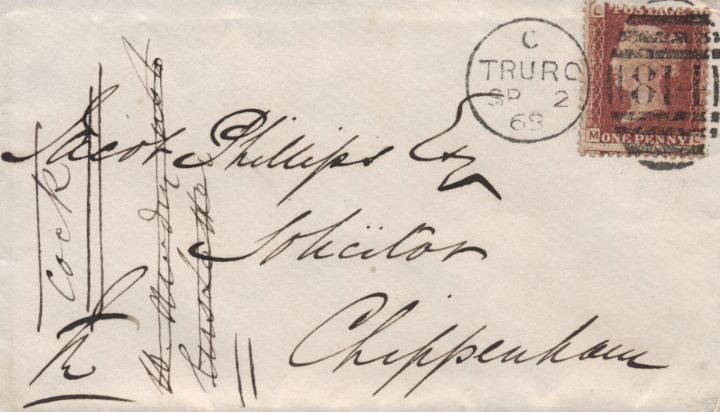 C
TRURO
SP 2
68
L
POSTAGE
M ONE PENNY L
Jacob Phillips Esq
Solicitor
Chippenham
cock